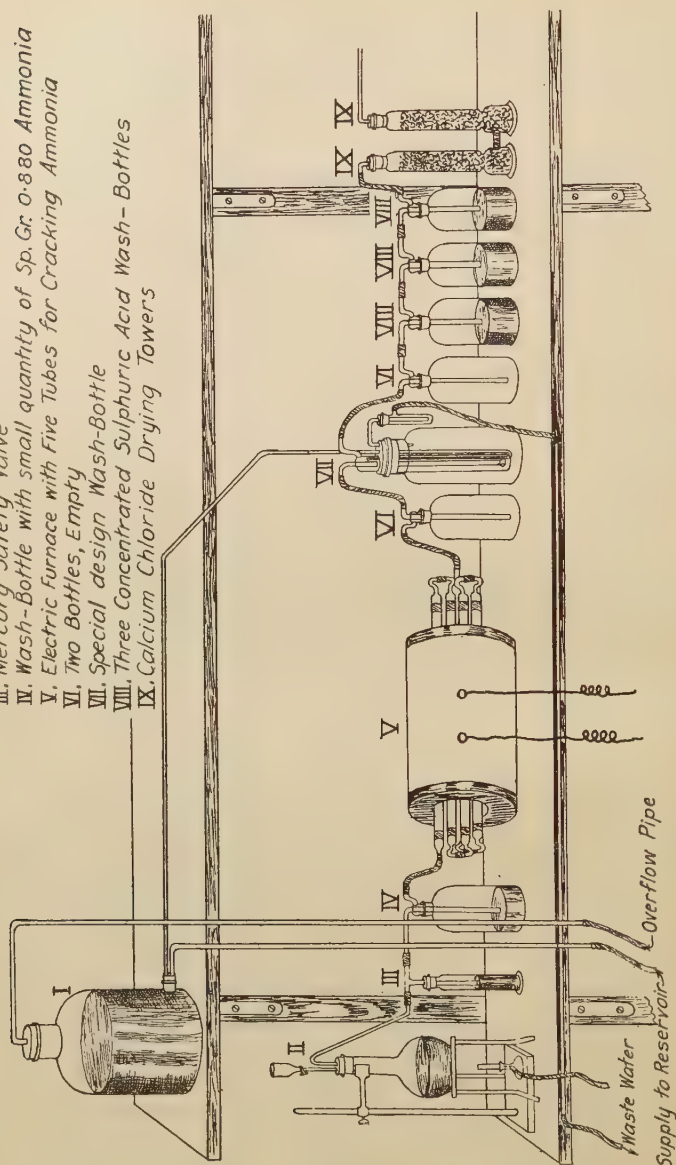 III. Mercury Safety Valve
IV. Wash-Bottle with small quantity of Sp. Gr. 0·880 Ammonia
V. Electric Furnace with Five Tubes for Cracking Ammonia
VI. Two Bottles, Empty
VII. Special design Wash-Bottle
VIII. Three Concentrated Sulphuric Acid Wash-Bottles
IX. Calcium Chloride Drying Towers
I
II
III
IV
V
VI
VII
VI
VIII
VIII
VIII
IX
IX
Waste Water
Supply to Reservoir
Overflow Pipe